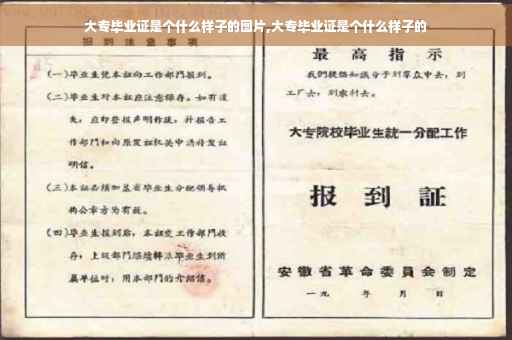 大专毕业证是个什么样子的图片,大专毕业证是个什么样子的
报到注意事项
(一)毕业生凭本证向工作部门报到。
(二)毕业生对本证应注意保存。如有遗
失，应即登报声明作废，并报告工
作部门和向原发证机关申请补发证
明信。
(三)本证必须加盖省毕业生分配领导机
构公章方为有效。
(四)毕业生报到后，本证交工作部门收
存；上级部门继续转派毕业生到所
属单位时，用本部门的介绍信。
最高指示
我们提倡知识分子到羣众中去，到
工厂去，到农村去。
大专院校毕业生統一分配工作
报到証
安徽省革命委員会制定
一九 年 月 日